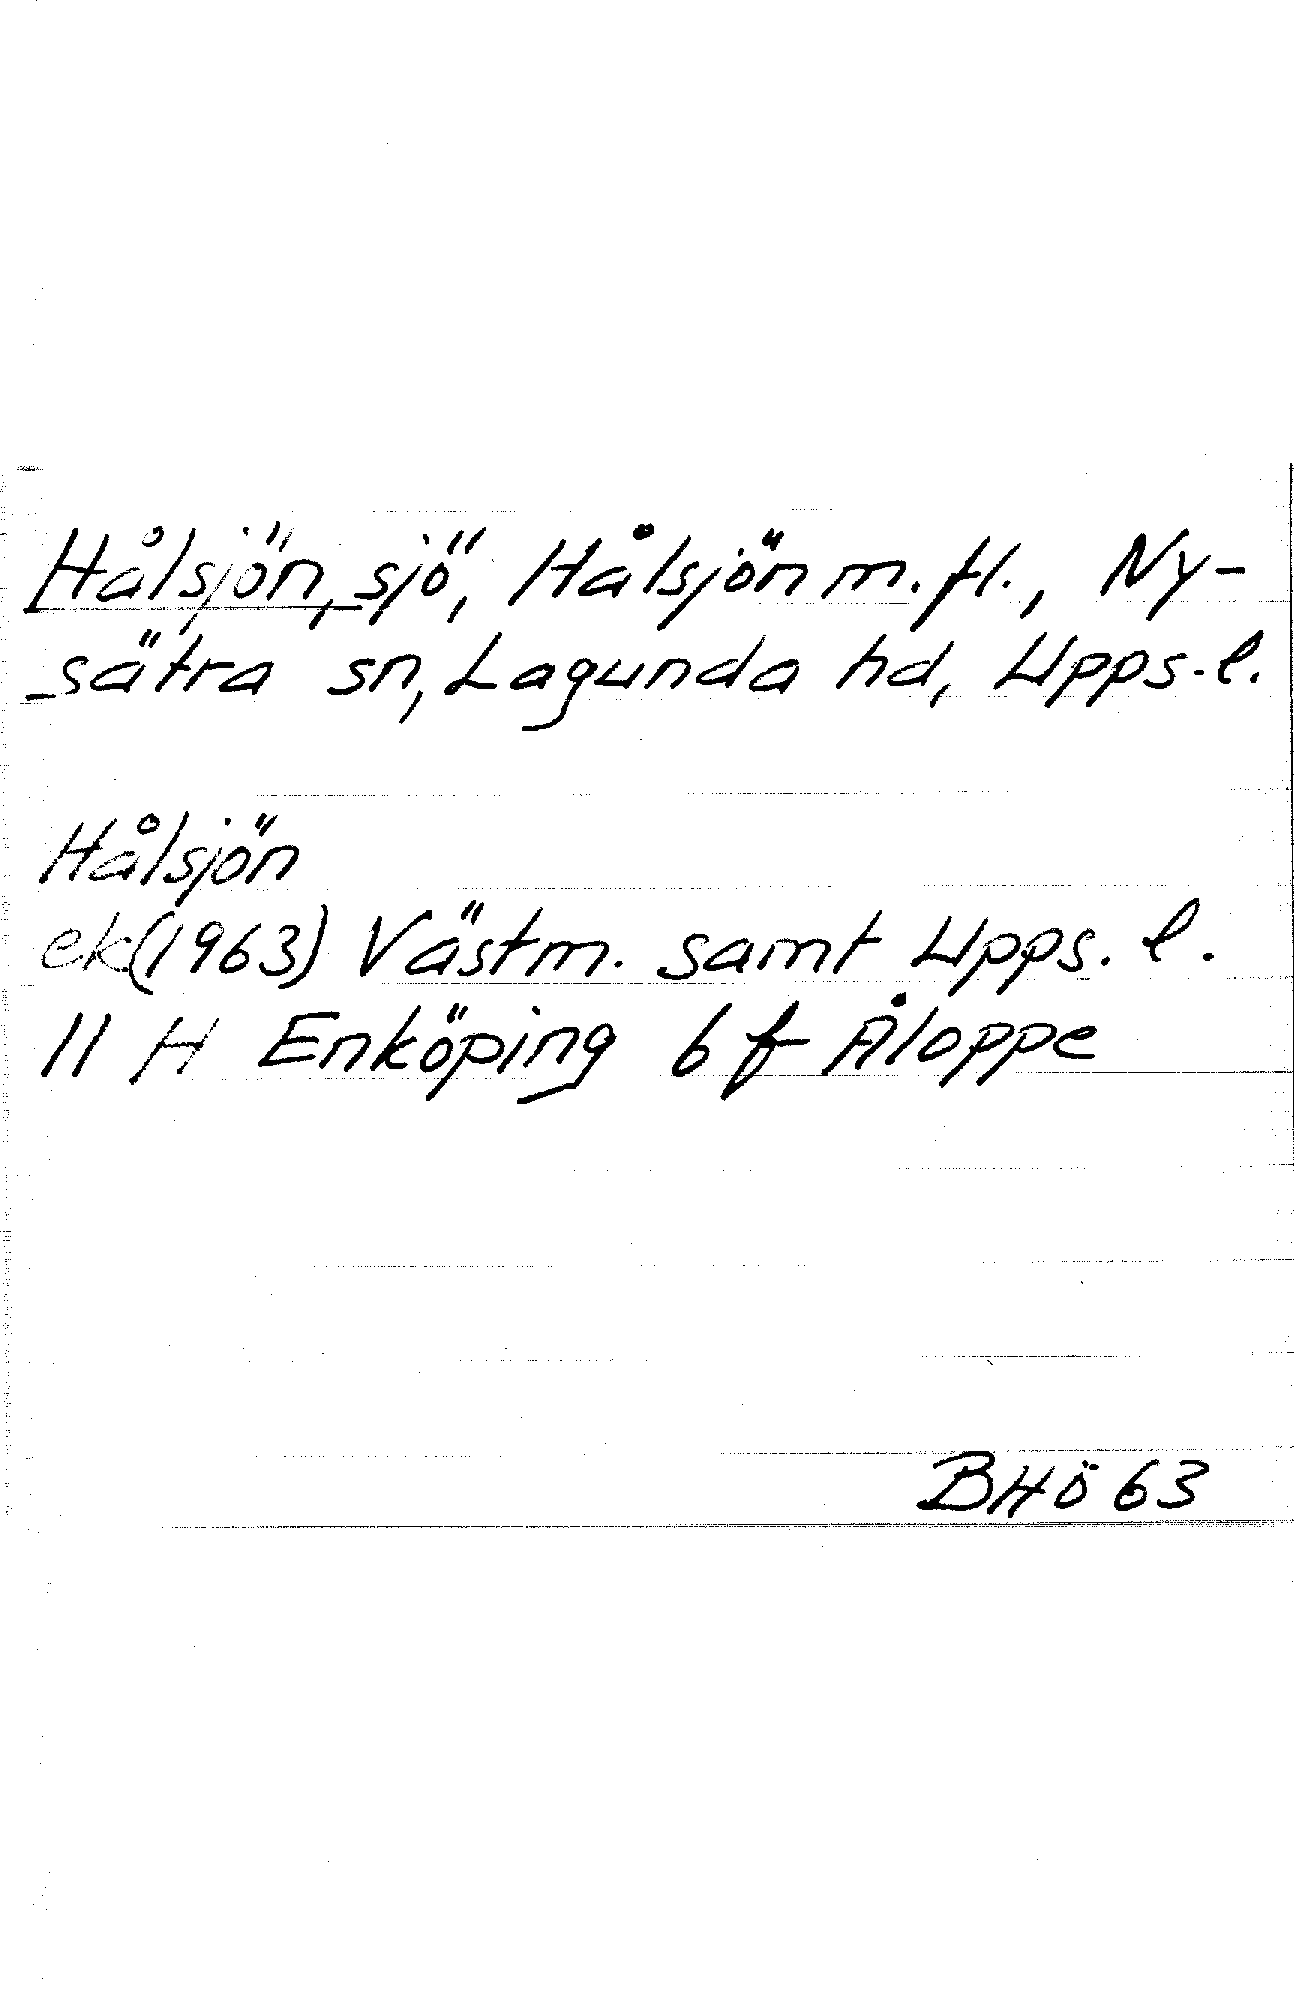 Hålsjön, sjö, Hålsjön m.fl., Ny-
sätra sn, Lagunda hd, Upps.l.
Hålsjön
ek(1963) Västm. samt Upps. l.
11 H Enköping 6 f Åloppe
BHö 63